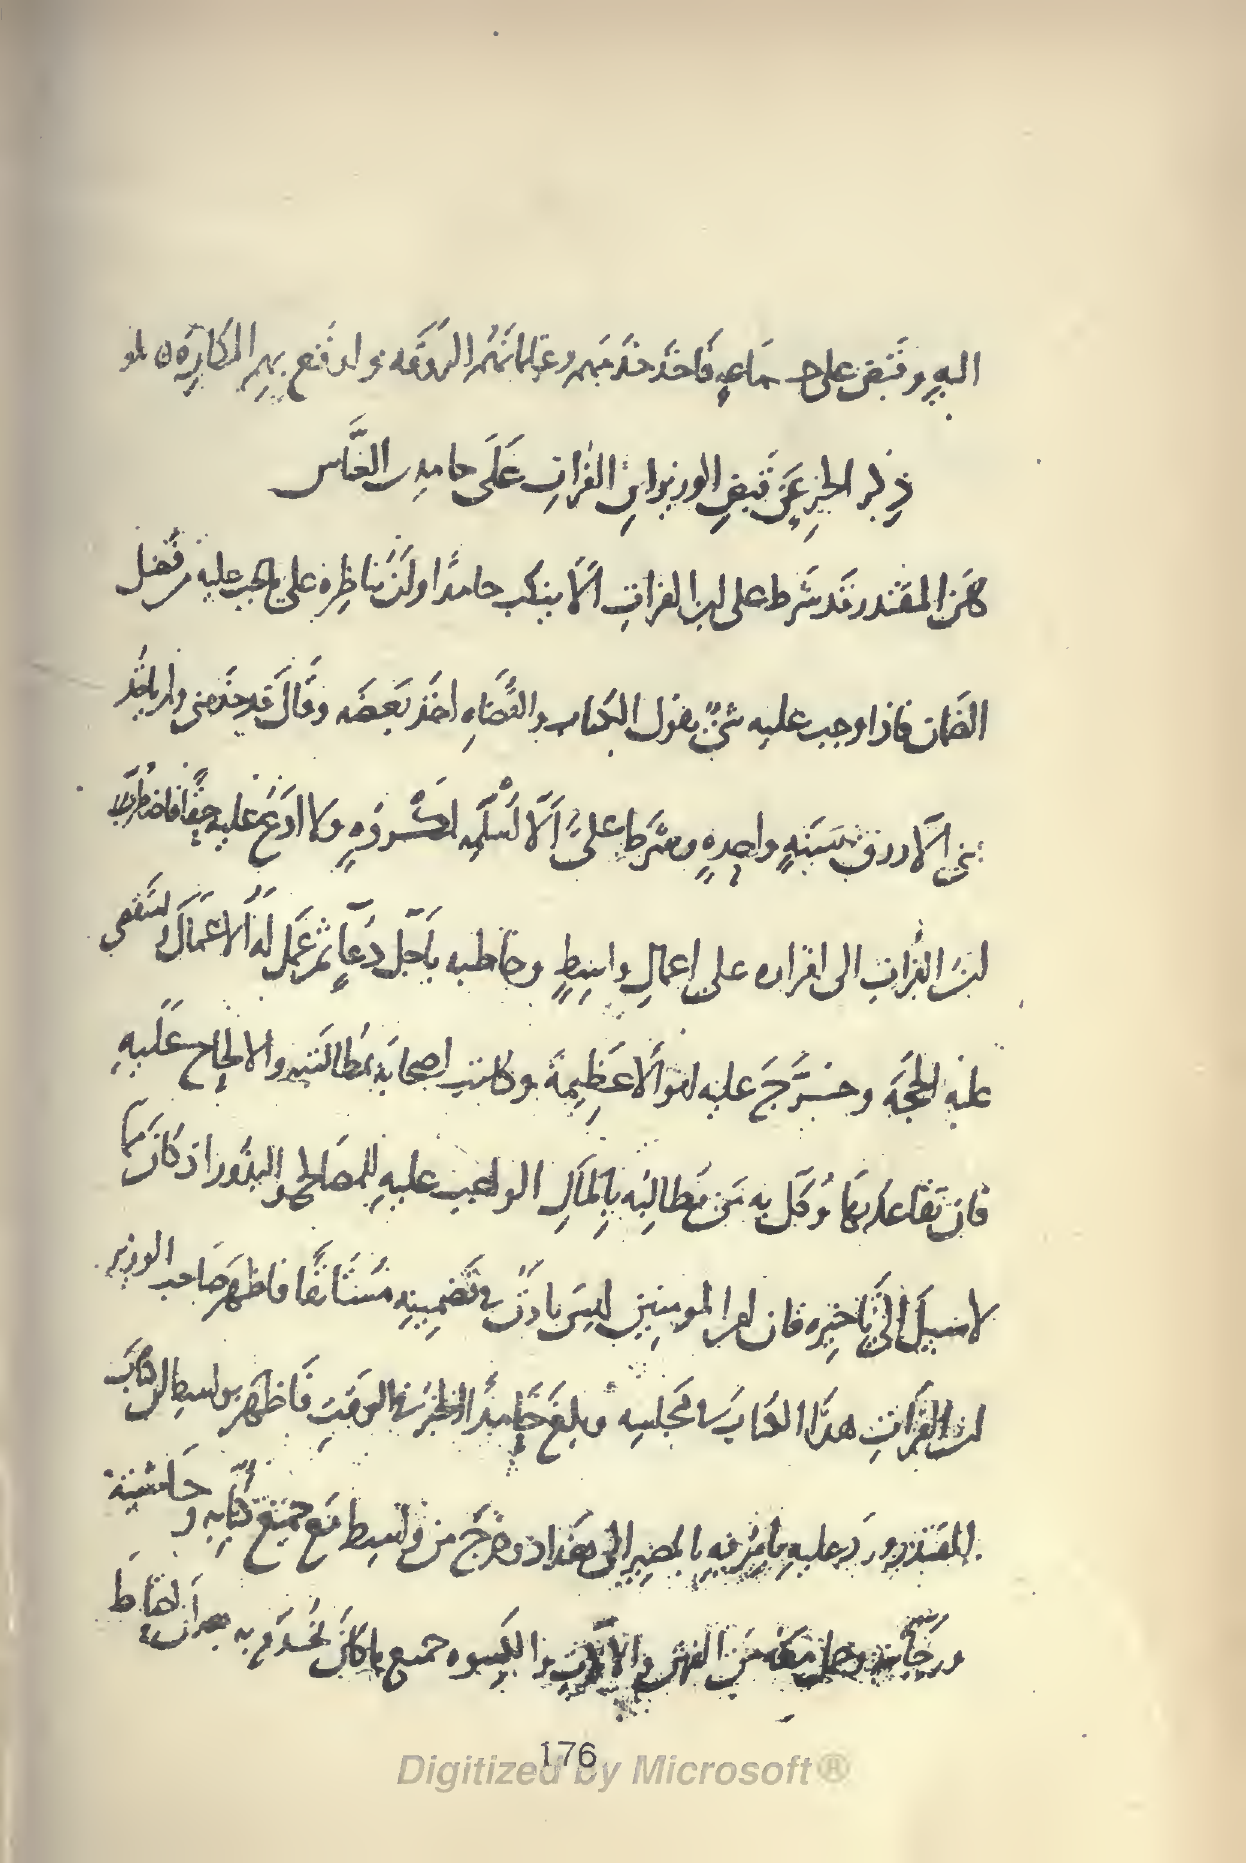 اليهِ وقَبَض على جماعةٍ فَاخذَ خَدَمَهم وغلمانَهُم الرُوقَه واوقَع بِهِم المكارِهَ
ذِكر الخبرِ عَن قَبضِ الوزير ابنِ الفُراتِ عَلَى حامدِ بن العَبَّاس
كانَ المقتدر قَد شرط على ابن الفراتِ اَلّا ينكب حامدًا واَن يُناظِره على ما يجب عليه من فَضل
الضَمان فاذا وجب عليه شيءٌ بقول الكتاب والقُضَاهِ اخذ بَعضَه وقَالَ قد خدَمني ولم ياخُذ
مِني اِلّا رزق سَنهٍ واحِدهٍ وشَرط عليَّ اَلّا اُسَلِّمه لمكروهٍ ولا ادَع عليهِ حقًّا فاضطرّ
ابنُ الفُراتِ الى اقراره على اعمالِ واسِطٍ وخاطبه باجَلّ دُعاءٍ ثم عَمل لَهُ الاعمَال
عليه الحجَّه وخَرَّجَ عليه اموَالًا عَظِيمةً وكاتب اصحابَه بمُطالبَتِهِ والالحاحِ عَليهِ
فان تقاعد بهَا وُكّل بهِ مَن يُطالِبُه بالمَالِ الواجب عليهِ للمصَالح والبذُور اذ كان ممّا
لا سبيلَ الى تاخيره فان امير المومنين لَيسَ ياذَنُ في تضمِينِه مُستَانفًا فاظهَر صَاحب الوزير
ابن الفُراتِ هذا الكتاب في مَجلسِه وبلغَ حَامِدًا الخبر في الوقتِ فَاظهَر بواسِط انّ كتابَ
المقتدر ورَد عليهِ يامُرُهُ فيهِ بالمصير الى بغداذ وخرجَ من واسِط مَع جميع كُتّابِه وحاشيته
ورَجَّالته وحَمل معَه مِن الفرش والالاتِ والكِسوه جميع ما كانَ يُخدَم بهِ
176
Digitized by Microsoft®